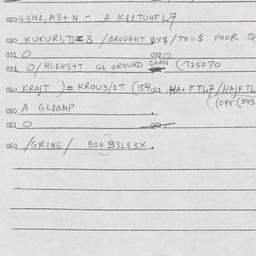 020 G3N&, M3+N - A K81TO4FL7
030 KUKURI,D=3 /BROUGHT BY$/TO+$ POOR Q
031 O 032 O
033 O/HLEHS+T GL GROUND CORN (125070
040 KROJT )= KROU3/1T (154 041 HA. FTL7/HAJFTL
(095 (343
050 A GL8OMP
051 O
060 /GRINE/ 804 B3L83X.